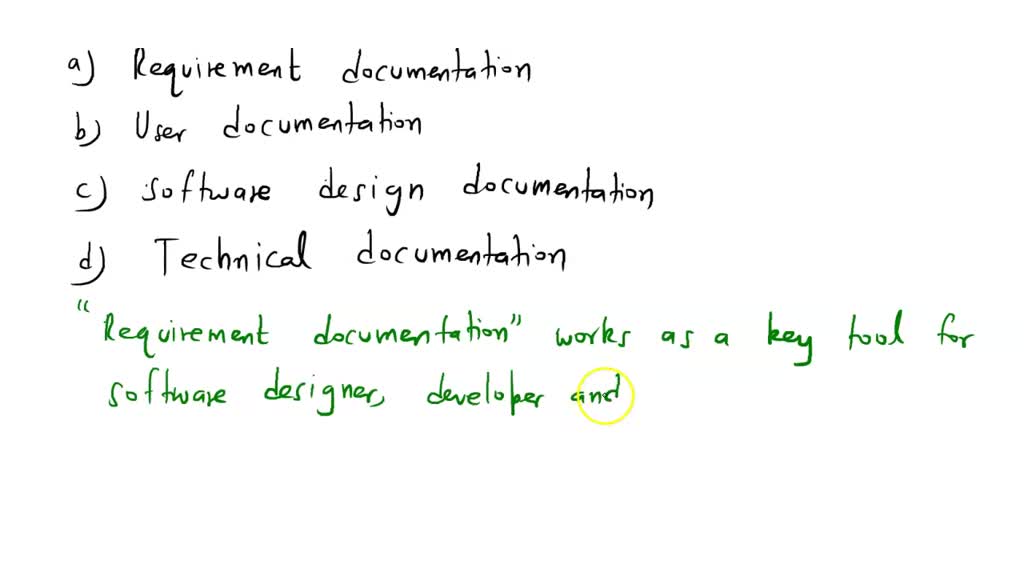 a) Requirement documentation
b) User documentation
c) Software design documentation
d) Technical documentation
"Requirement documentation" works as a key tool for
software designer, developer and